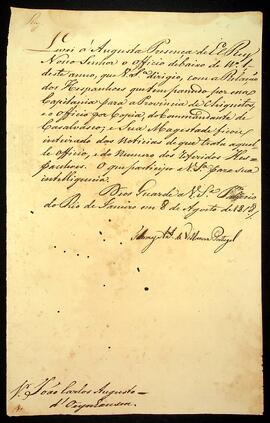 Levei á Augusta Presença de El Rey
Nosso Senhor o Officio debaixo de Nº 4
deste anno, que V. Sª dirigio, com a Relação
dos Hespanhoes que tem passado por essa
Capitania para a Provincia de Chiquitos,
e o Officio por Copia do Commandante de
Casalvasco; e Sua Magestade ficou
inteirado das Noticias de que trata aquel-
le Officio, e do Numero dos referidos Hes-
panhoes. O que participo a V. Sª para sua
intelligencia.
Deos Guarde a V. Sª Palacio
do Rio de Janeiro em 8 de Agosto de 1818
Thomaz Ant. de Villanova Portugal
Sr. João Carlos Augusto
d'Oeynhausen